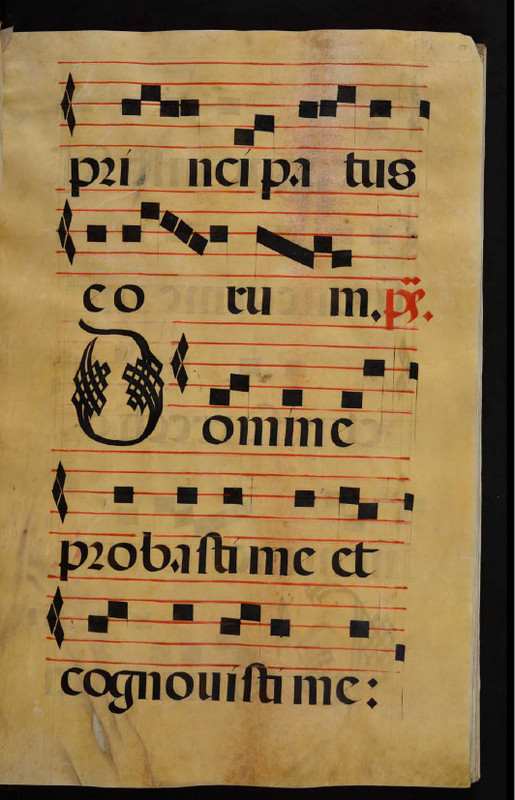 pri ncipa tus
co ru m. ps.
Domine
probasti me et
cognouisti me: